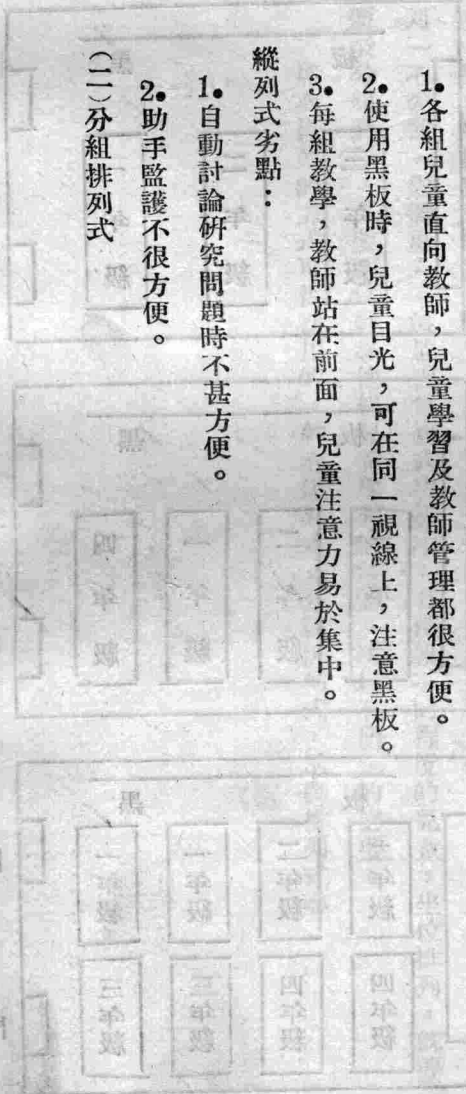 1.各組兒童直向教師，兒童學習及教師管理都很方便。
2.使用黑板時，兒童目光，可在同一視線上，注意黑板。
3.每組教學，教師站在前面，兒童注意力易於集中。
縱列式劣點：
1.自動討論研究問題時不甚方便。
2.助手監護不很方便。
(二)分組排列式